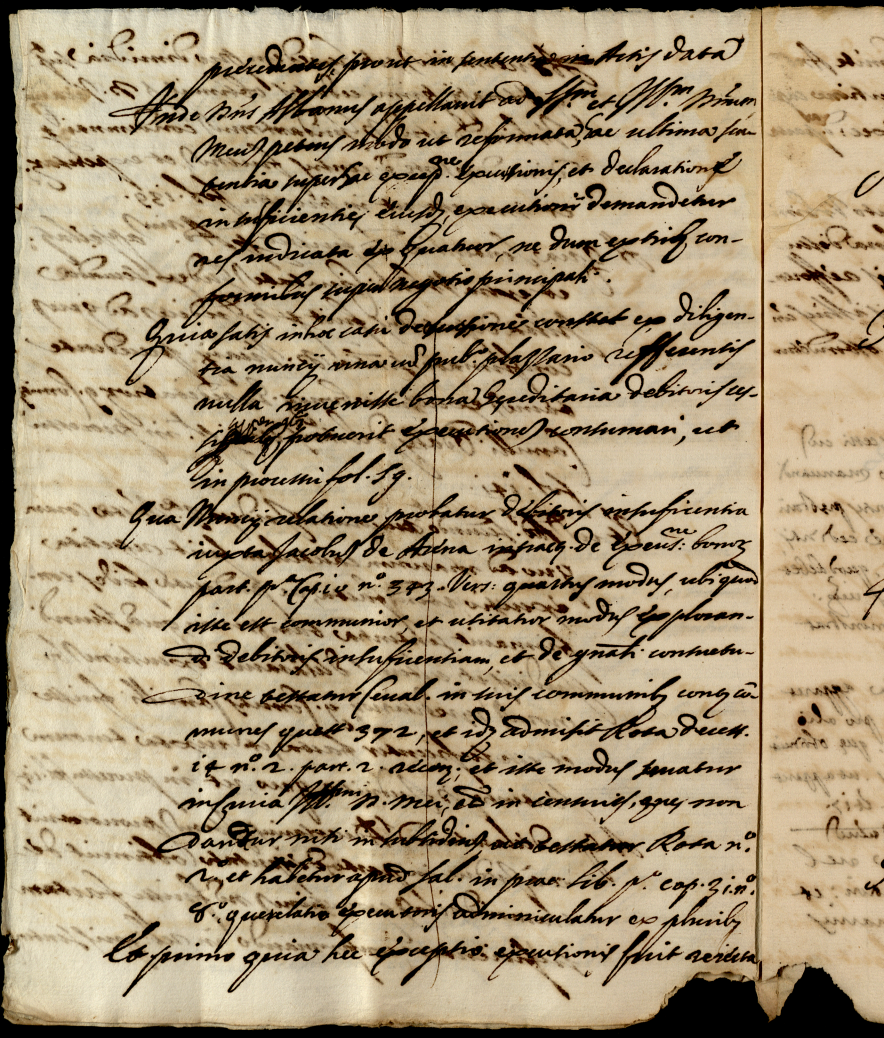 precedentis, prout in sententia in Actis data
Inde Dns Albanus appellavit ad Illm et Rm Dnum
meum petens modo ut reformata hac ultima sen-
tentia super hac excep.ne excussionis, et declaratione
insufficientiæ eiusdem executioni demandetur
res iudicata ex quatuor, ne dum ex tribus con-
formibus super negotio principali.
Quia satis in hoc casu de excussione constat ex diligen-
tia nuncij una cum pub.o plazario refferentis
nulla invenisse bona hereditaria debitoris
potuerit executiones consumari, ut
in processu fol. 59.
Qua Nuncij relatione probatur debitoris insufficientia
iuxta Jacobum de Arena in tract. de excuss.ne bonor
part. p.a Cap. io n.o 343. Vers: quartus modus, ubi quod
iste est communior, et usitatior modus exploran-
di debitoris insufficientiam, et de gnali consuetu-
dine testatur Ceual. in suis communib contra co-
munes quest. 372, et idem admisit Rota decis.
14 n.o 2. part. 2. recen., et iste modus servatur
in Curia Illmi D. mei, et in censuris, quæ non
dantur nisi in subsidium, testatur Rota n.o
2.o et habetur apud Sal. in prac. lib. p.o cap. 31. n.o
8.o que relatio executoris adminiculatur ex pluribus
Et primo quia hec exceptio excussionis fuit reiecta